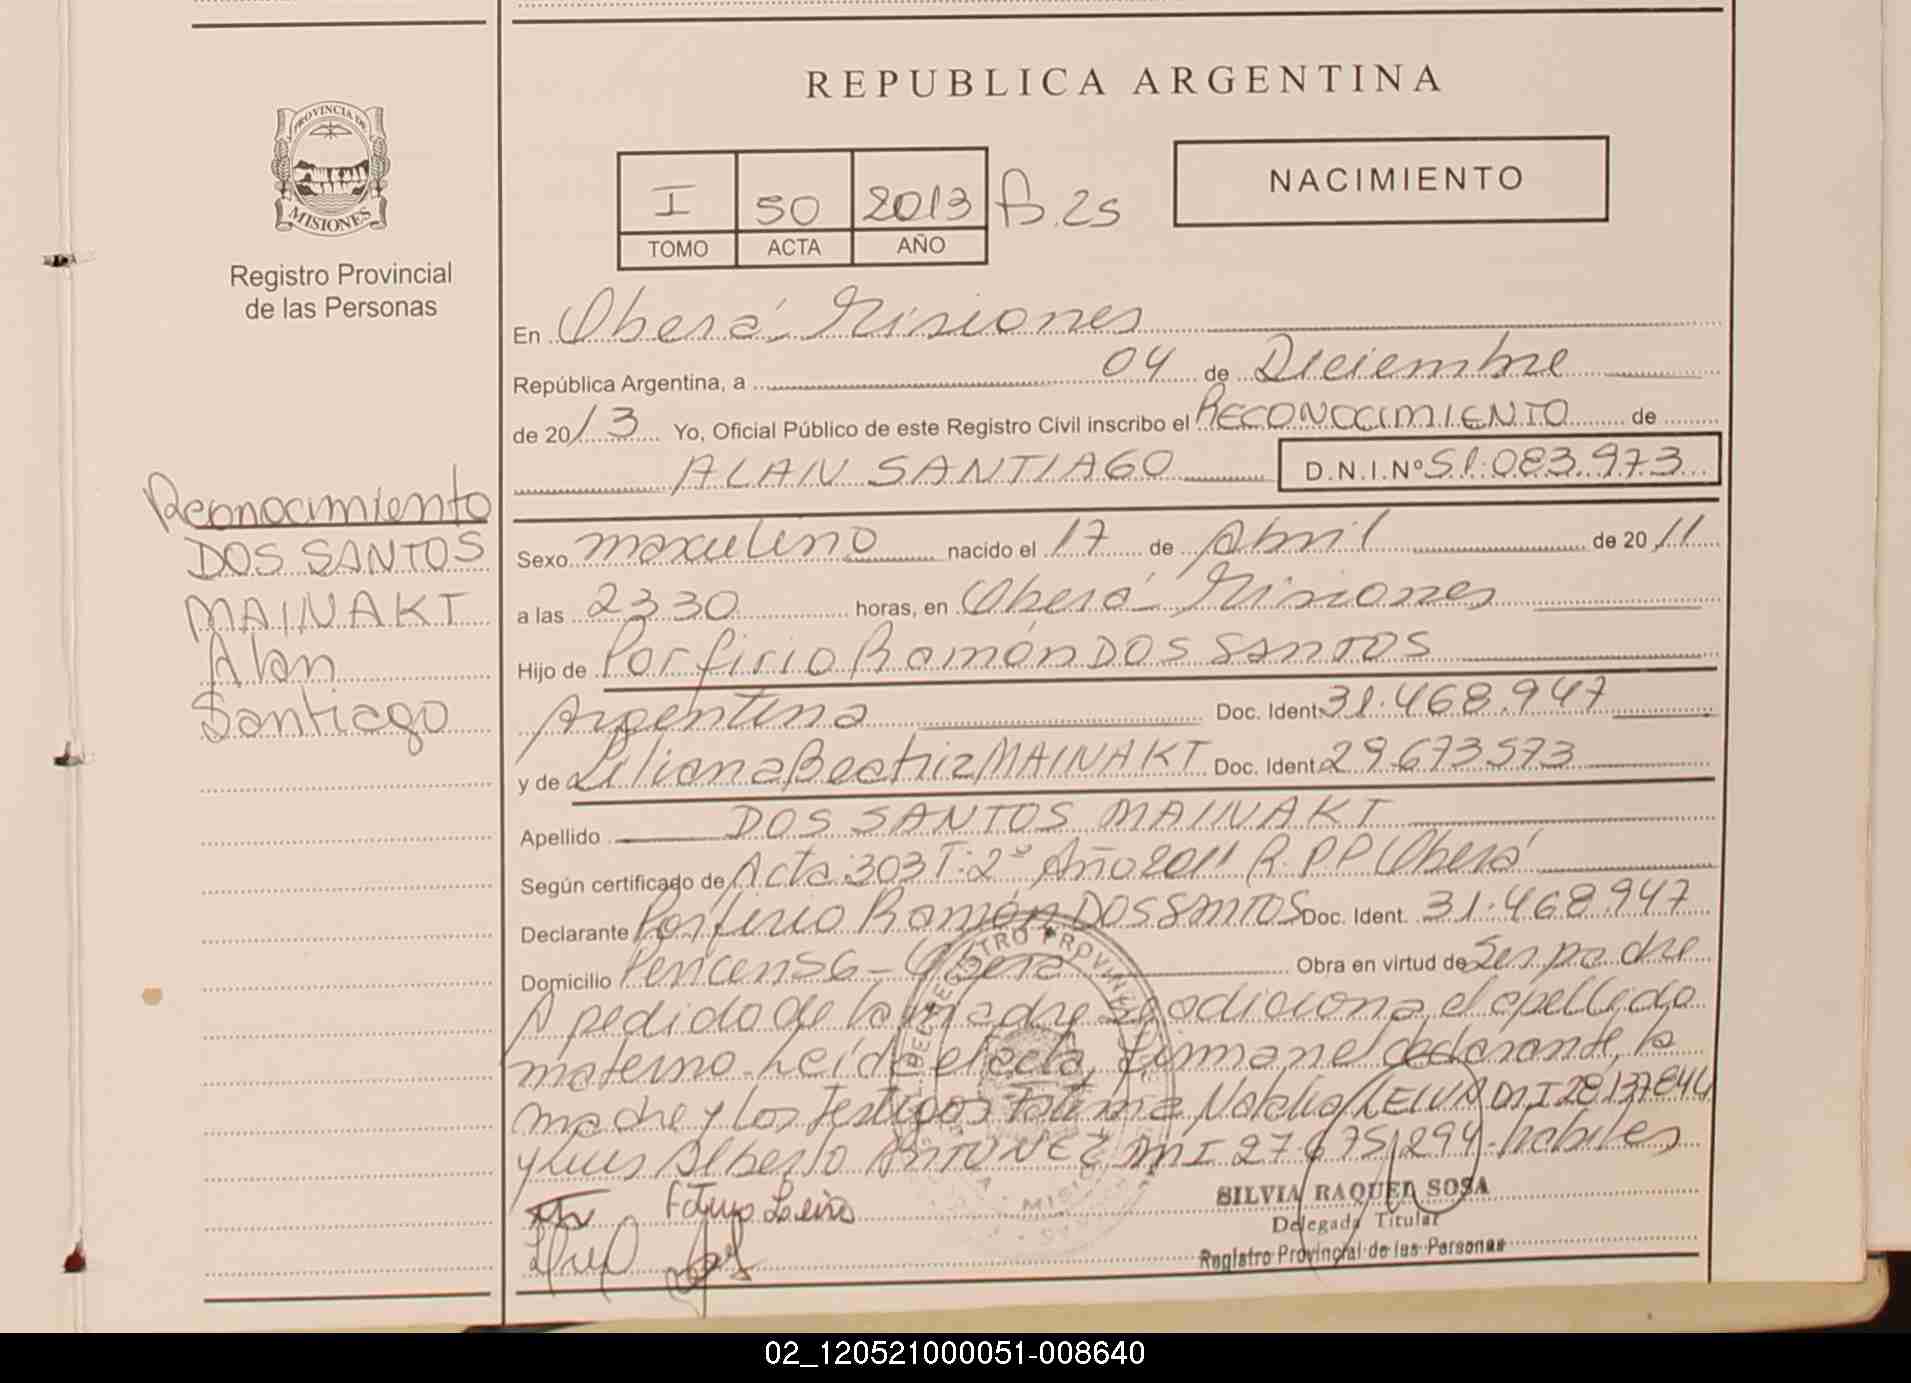 REPUBLICA ARGENTINA
PROVINCIA DE
MISIONES
Registro Provincial
de las Personas
I 50 2013 25
TOMO ACTA AÑO
NACIMIENTO
En Oberá Misiones
República Argentina, a 04 de Diciembre
de 2013 Yo, Oficial Público de este Registro Civil inscribo el RECONOCIMIENTO de
ALAN SANTIAGO D.N.I.Nº 51.083.973
Reconocimiento
DOS SANTOS
MAINAKT
Alan
Santiago
Sexo masculino nacido el 17 de Abril de 2011
a las 23 30 horas, en Oberá Misiones
Hijo de Porfirio Ramón DOS SANTOS
Argentina Doc. Ident. 31.468.947
y de Liliana Beatriz MAINAKT Doc. Ident. 29.673573
Apellido DOS SANTOS MAINAKT
Según certificado de Acta 303 T: 2º Año 2011 R.P.P Oberá
Declarante Porfirio Ramón DOS SANTOS Doc. Ident. 31.468.947
Domicilio Oberá Obra en virtud de Ser padre
A pedido de la madre se adiciona el apellido
materno. Leída el acta, firman el declarante, la
madre y los testigos Fatima Natalia LEIVA DNI 28137844
y Luis Alberto ANTUNEZ DNI 27.675.294. habiles
SILVIA RAQUEL SOSA
Delegada Titular
Registro Provincial de las Personas
02_120521000051-008640